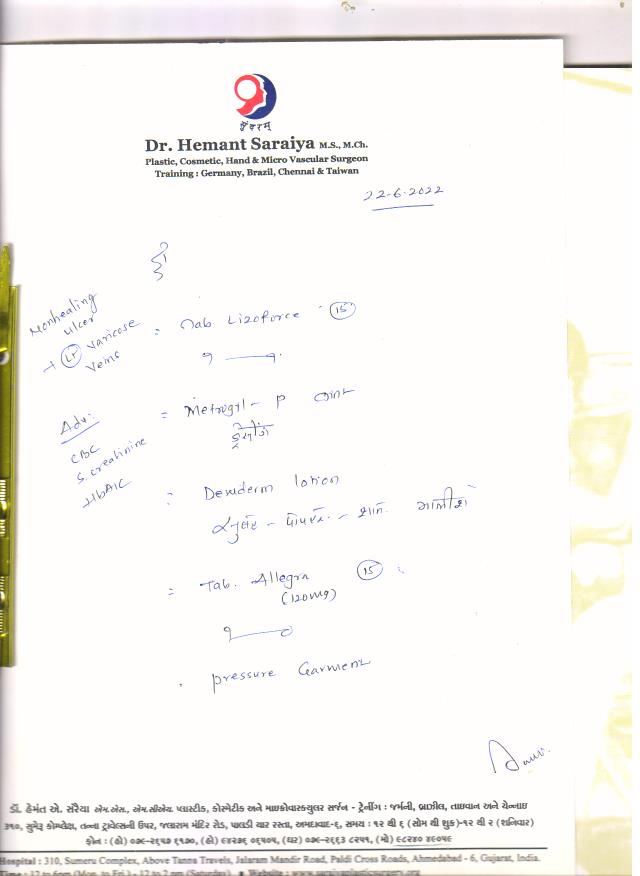 Dr. Hemant Saraiya M.S., M.Ch.
Plastic, Cosmetic, Hand & Micro Vascular Surgeon
Training : Germany, Brazil, Chennai & Taiwan
22-6-2022
Nonhealing
ulcer
Lt Varicose
Veins
= Tab Lizoforce 15
Adv:
CBC
S. creatinine
HbA1C
= Metrogyl - P oint
ડ્રેસીંગ
= Dewderm lotion
= Tab. Allegra 15
(120mg)
pressure Garment
ડૉ. હેમંત એ. સરૈયા એમ.એસ., એમ.સીએચ. પ્લાસ્ટીક, કોસ્મેટીક અને માઇક્રોવાસ્ક્યુલર સર્જન - ટ્રેનીંગ : જર્મની, બ્રાઝીલ, તાઇવાન અને ચેન્નાઇ
૩૧૦, સુમેરૂ કોમ્પ્લેક્ષ, તન્ના ટ્રાવેલ્સની ઉપર, જલારામ મંદિર રોડ, પાલડી ચાર રસ્તા, અમદાવાદ-૬, સમય : ૧૨ થી ૬ (સોમ થી શુક્ર)-૧૨ થી ૨ (શનિવાર)
Hospital : 310, Sumeru Complex, Above Tanna Travels, Jalaram Mandir Road, Paldi Cross Roads, Ahmedabad - 6, Gujarat, India.
Time : 12 to 6pm (Mon. to Fri.) - 12 to 2 pm (Saturday) • Website : www.saraiyaplasticsurgery.org